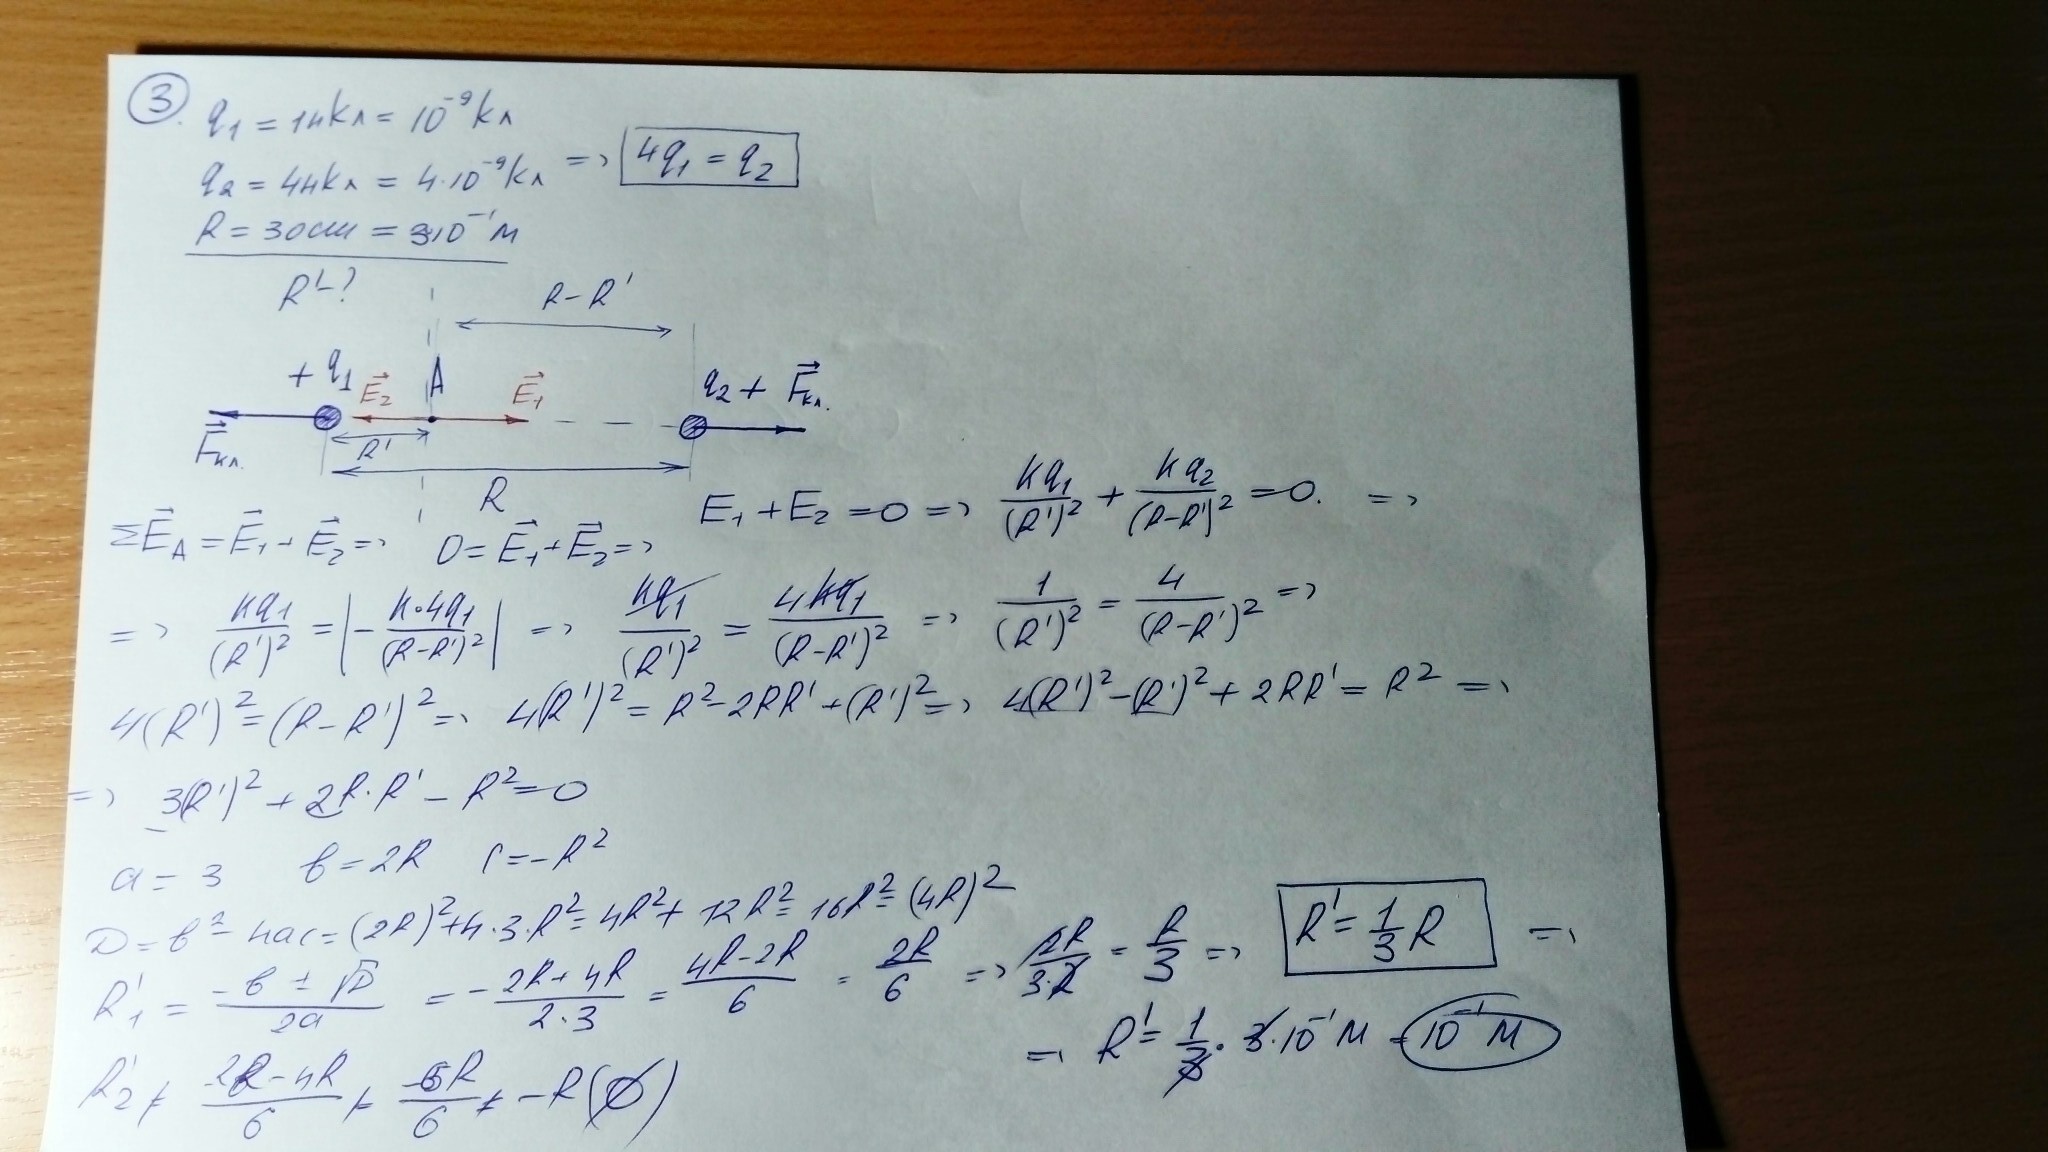 3. q₁ = 1нКл = 10⁻⁹Кл
q₂ = 4нКл = 4·10⁻⁹Кл => 4q₁ = q₂
R = 30см = 3·10⁻¹м
R'-?
R-R'
+ q₁ E⃗₂ A E⃗₁ q₂ + F⃗кл.
F⃗кл. R'
R
ΣE⃗A = E⃗₁ + E⃗₂ => 0 = E⃗₁ + E⃗₂ => E₁ + E₂ = 0 => kq₁/(R')² + kq₂/(R-R')² = 0. =>
=> kq₁/(R')² = |- k·4q₁/(R-R')²| => kq₁/(R')² = 4kq₁/(R-R')² => 1/(R')² = 4/(R-R')² =>
4(R')² = (R-R')² => 4(R')² = R² - 2RR' + (R')² => 4(R')² - (R')² + 2RR' = R² =>
=> 3(R')² + 2R·R' - R² = 0
a = 3 в = 2R c = -R²
D = в² - 4ac = (2R)² + 4·3·R² = 4R² + 12R² = 16R² = (4R)²
R'₁ = (-в ± √D)/2a = (-2R + 4R)/(2·3) = (4R-2R)/6 = 2R/6 => 2R/(3·2) = R/3 => R' = 1/3 R =>
=> R' = 1/3 · 3·10⁻¹ м = 10⁻¹ м
R'₂ = (-2R - 4R)/6 = -6R/6 = -R (∅)